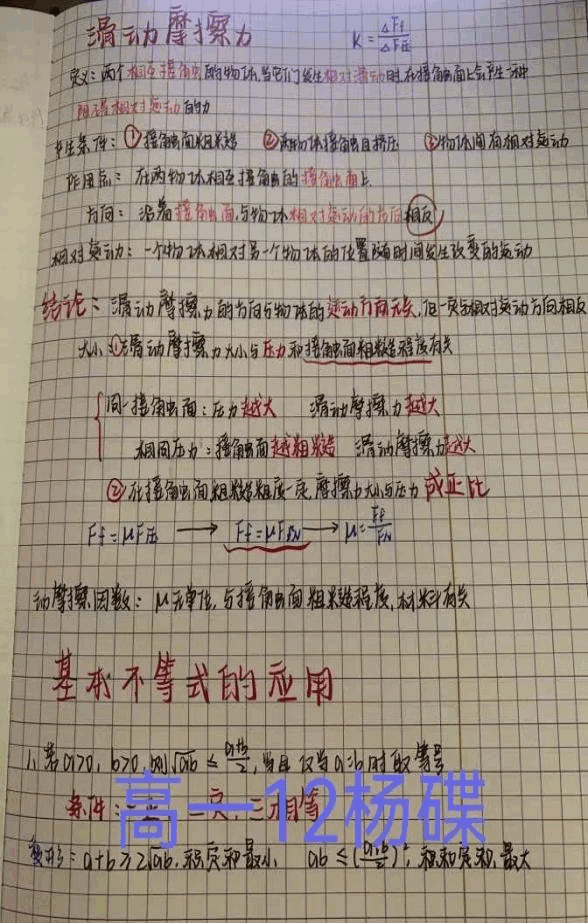 滑动摩擦力 K=ΔFf/ΔF压
定义:两个相互接触的物体,当它们发生相对滑动时,在接触面上会产生一种
阻碍相对运动的力
产生条件:①接触面粗糙 ②两物体接触且挤压 ③物体间有相对运动
作用点:在两物体相互接触的接触面上
方向:沿着接触面,与物体相对运动的方向相反
相对运动:一个物体相对另一个物体的位置随时间发生改变的运动
结论:滑动摩擦力的方向与物体的运动方向无关,但一定与相对运动方向相反
大小:①滑动摩擦力大小与压力和接触面粗糙程度有关
同一接触面:压力越大 滑动摩擦力越大
相同压力:接触面越粗糙 滑动摩擦力越大
②在接触面粗糙程度一定,摩擦力大小与压力成正比
Ff=μF压 → Ff=μFN → μ=Ff/FN
动摩擦因数:μ无单位,与接触面粗糙程度,材料有关
基本不等式的应用
1、若a>0,b>0,则√ab≤(a+b)/2,当且仅当a=b时取等号
条件:一正二定,三相等
高一12杨碟
变形:a+b≥2√ab,积定和最小 ab≤((a+b)/2)²,和定积最大